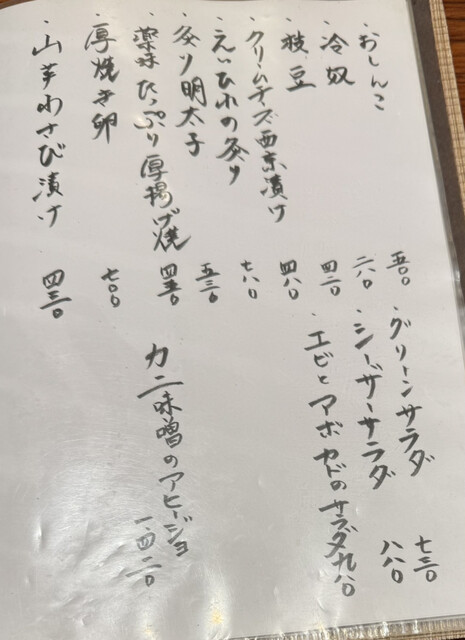 ・おしんこ 五〇〇
・冷奴 二八〇
・枝豆 四二〇
・クリームチーズ西京漬け 四八〇
・えいひれの炙り 七八〇
・炙り明太子 五三〇
・薬味たっぷり厚揚げ焼 四五〇
・厚焼き卵 七〇〇
・山芋わさび漬け 四三〇
・グリーンサラダ 七三〇
・シーザーサラダ 八八〇
・エビとアボカドのサラダ 九八〇
・カニ味噌のアヒージョ 一、四二〇